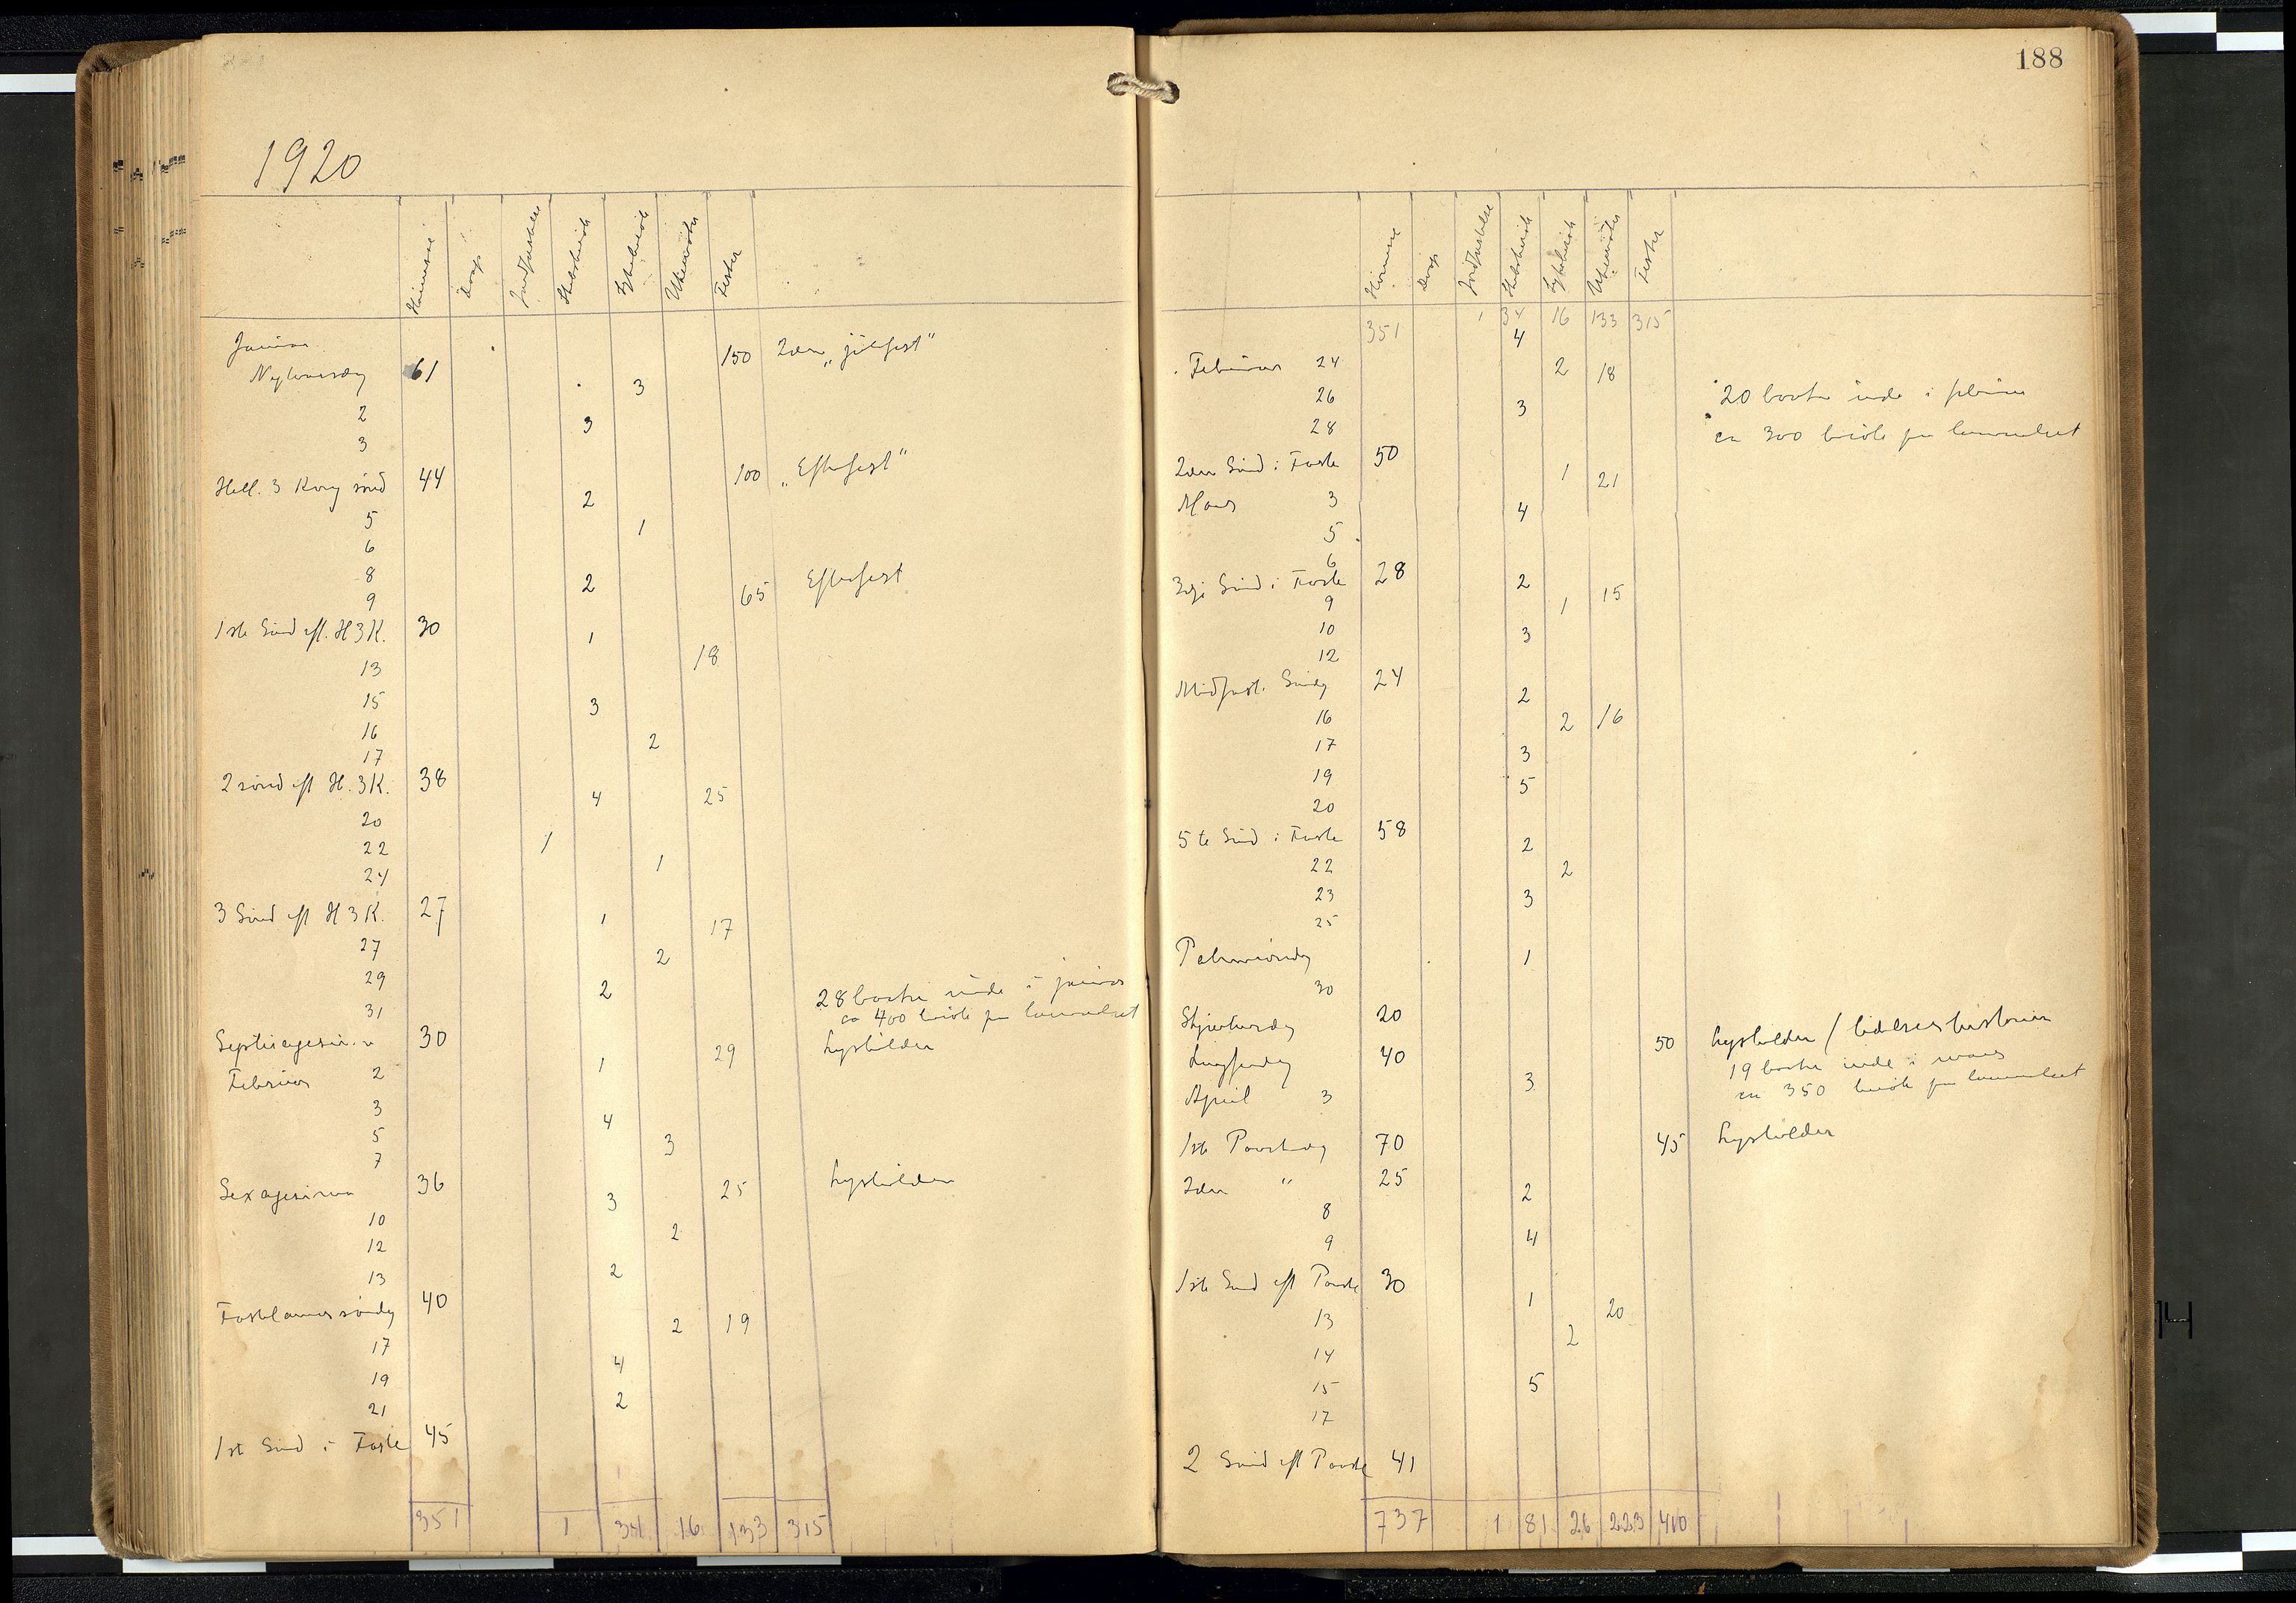 1920
Dåp Jordfæstelse Skibsbesøk Sykebesøk Utemøter Fester
Januar 150 2den „julefest"
Nyttaarsdag 61 3
2 3
3
Hell. 3 Kong. sønd 44 100 „Efterfest"
5 2
6 1
8
9 2 65 Efterfest
1ste Sønd eft. H 3 K. 30
13 1 18
15
16 3
17 2
2 sønd eft H. 3 K. 38
20 4 25
22 1
24 1
3 Sønd eft H 3 K. 27
27 1 17
29 2
31 2 28 baater inde i januar
ca 400 besøk paa læseværelset
Septuagesima 30 Lysbilder
Februar 2 1 29
3
5 4
7 3
Sexagesima 36 Lysbilder
10 3 25
12 2
13 2
Fastelavnssøndag 40
17 2 19
19 4
21 2
1st Sønd i Faste 45
351 1 34 16 133 315
188
Dåp Jordfæstelse Skibsbesøk Sykebesøk Utemøter Fester
351 1 34 16 133 315
4
Februar 24 2 18
26 3 20 baater inde i februar
28 ca 300 besøk paa læseværelset
2den Sønd i Faste 50
Mars 3 1 21
5 4
6
3dje Sønd i Faste 28 2
9 1 15
10 3
12
Midfaste Søndag 24 2
16 2 16
17 3
19 5
20
5te Sønd i Faste 58 2
22 2
23 3
25
Palmesøndag 1
30
Skjærtorsdag 20 50 Lysbilder / lidelseshistorien
Langfredag 40 19 baater inde i mars
April 3 3 ca 350 besøk paa læseværelset
1ste Paaskedag 70 45 Lysbilder
2den " 25 2
8
9 4
1ste Sønd eft Paaske 30
13 1 20
14 2
15 5
17
2 Sønd eft Paaske 41
737 1 81 26 223 410